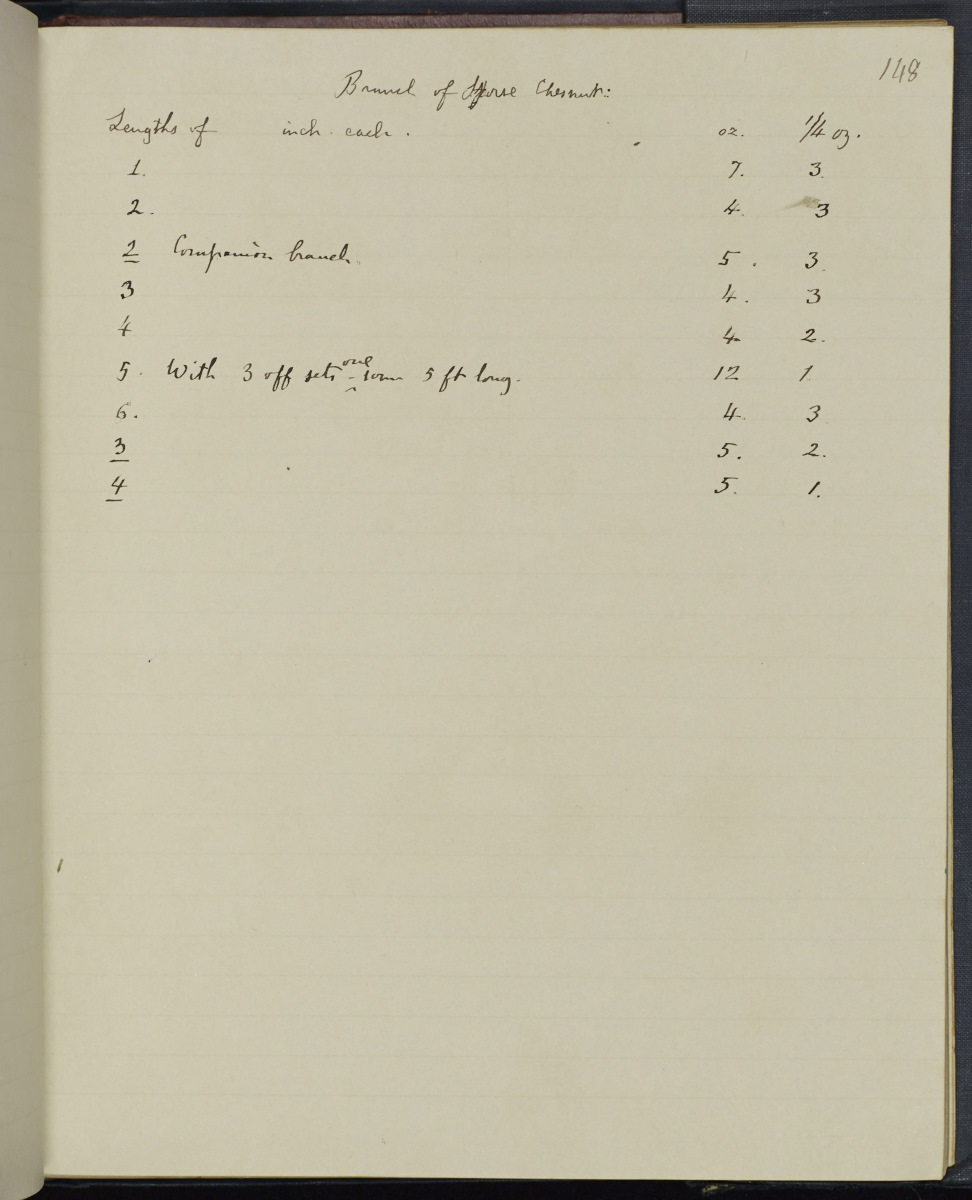 148
Branch of Horse Chesnut:
Lengths of inch each. oz. 1/4 oz.
1. 7. 3.
2. 4. 3
2 Companion branch. 5. 3.
3 4. 3
4 4 2.
5. With 3 off sets - one 5 ft long. 12 1.
6. 4. 3
3 5. 2.
4 5. 1.